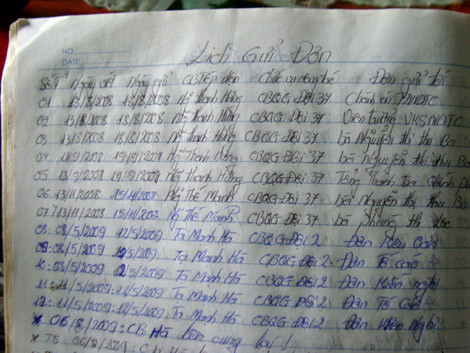 NO
DATE
Lịch Gửi Đơn
Số TT Ngày viết Ngày gửi CB tiếp đơn Đơn gửi tới
01 13/8/2008 18/8/2008 Ng Thanh Hùng CBQG Đội 37 Chánh án TANDTC
02 13/8/2008 18/8/2008 Ng Thanh Hùng CBQG Đội 37 Viện trưởng VKSNDTC
03 13/8/2008 18/8/2008 Ng Thanh Hùng CBQG Đội 37 bà Nguyễn thị thu Ba
04 19/9/2008 Ng Thanh Hùng CBQG Đội 37 bà Nguyễn thị thu Ba
05 19/9/2008 Ng Thanh Hùng CBQG Đội 37 Tổng Thanh tra
06 13/11/2008 15/11/2008 Ng Thế Mạnh CBQG Đội 37 bà Nguyễn thị thu Ba
07 13/11/2008 15/11/2008 Ng Thế Mạnh CBQG Đội 37 bà
08 08/5/2009 12/5/2009 Tạ Mạnh Hà CBQG Đội 2 Đơn Kêu Cứu
09 08/5/2009 12/5/2009 Tạ Mạnh Hà CBQG Đội 2 Đơn Tố cáo
10 08/5/2009 12/5/2009 Tạ Mạnh Hà CBQG Đội 2 Đơn Kiến nghị
11 11/5/2009 12/5/2009 Tạ Mạnh Hà CBQG Đội 2 Đơn Tố Cáo
12 11/5/2009 12/5/2009 Tạ Mạnh Hà CBQG Đội 2 Đơn Kiến Nghị
* 06/8/2009: CB Hà